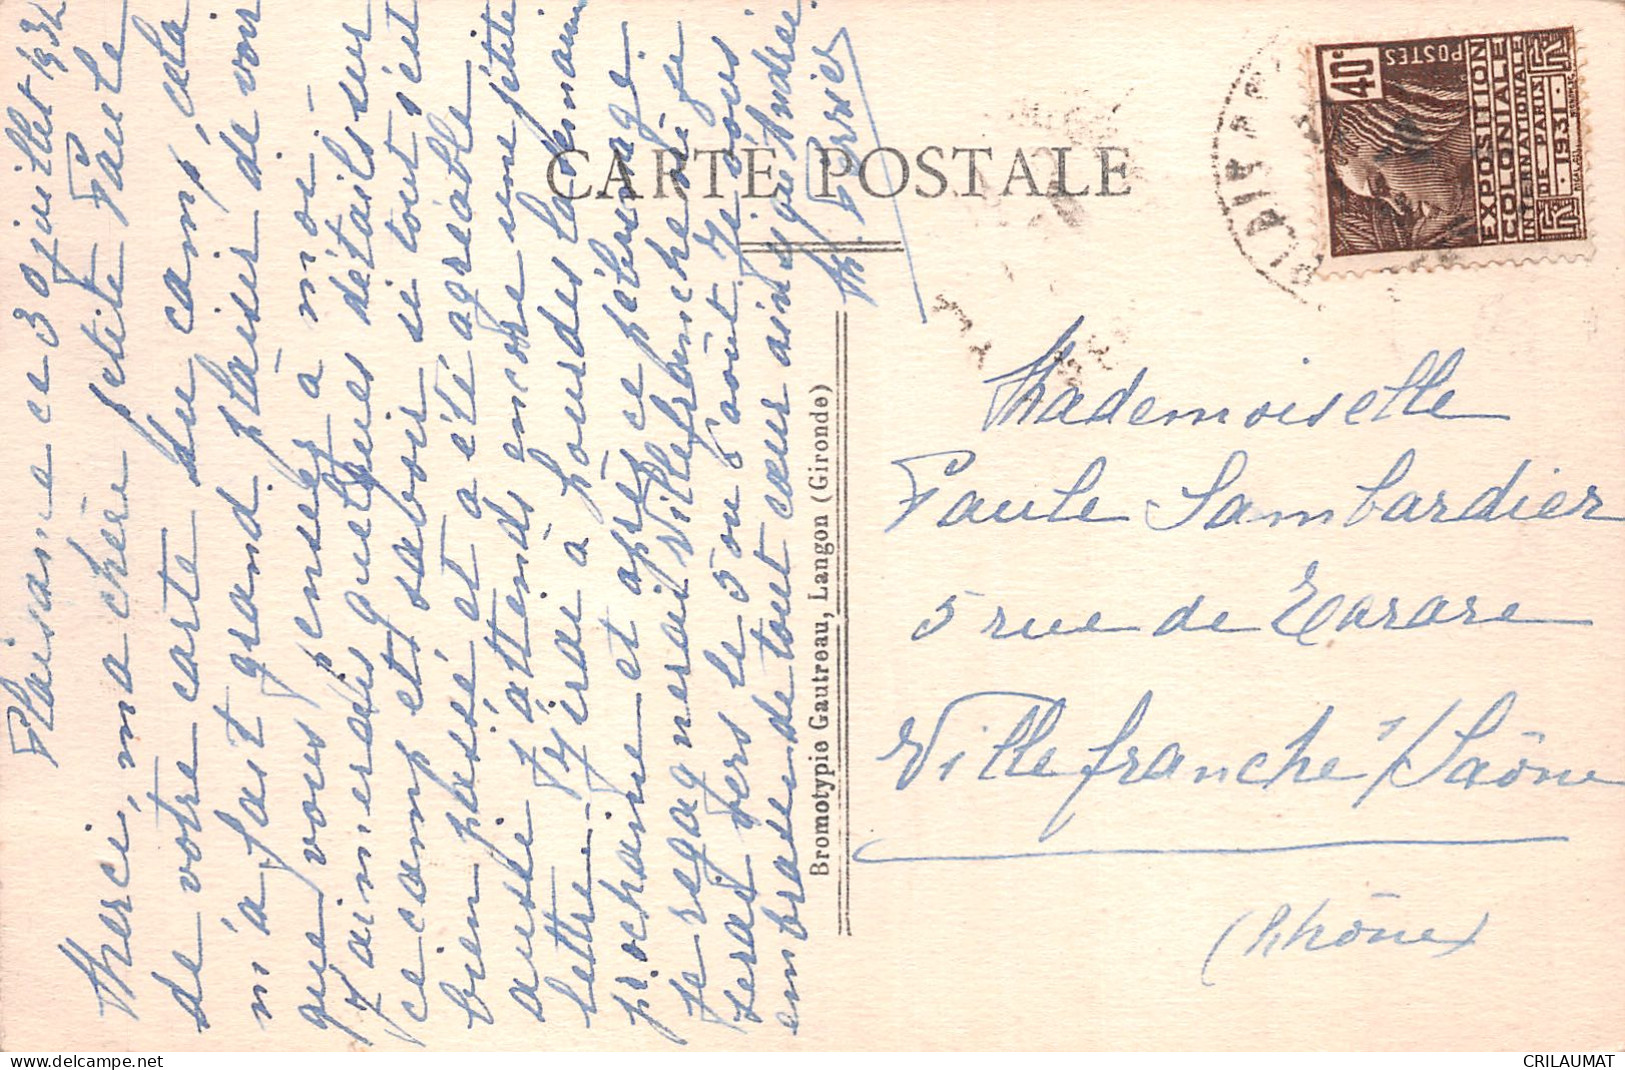 Plaisance ce 30 juillet 1931
Merci, ma chère petite Paule
de votre carte du camp, cela
m'a fait grand plaisir de voir
que vous pensez à moi.
J'aimerais quelques détails sur
ce camp et savoir si tout s'est
bien passé et a été agréable
aussi j'attends encore une petite
lettre. J'irai à Lourdes la semaine
prochaine et après ce pèlerinage
je regagnerai Villefranche où je
serai vers le 5 ou 6 août. Je vous
embrasse de tout cœur ainsi qu'Andrée.
M. Perrier
CARTE POSTALE
Bromotypie Gautreau, Langon (Gironde)
40c
POSTES
EXPOSITION
COLONIALE
INTERNATIONALE
DE PARIS
1931
Mademoiselle
Paule Lambardier
5 rue de Tarare
Villefranche s/Saône
(Rhône)
www.delcampe.net
CRILAUMAT